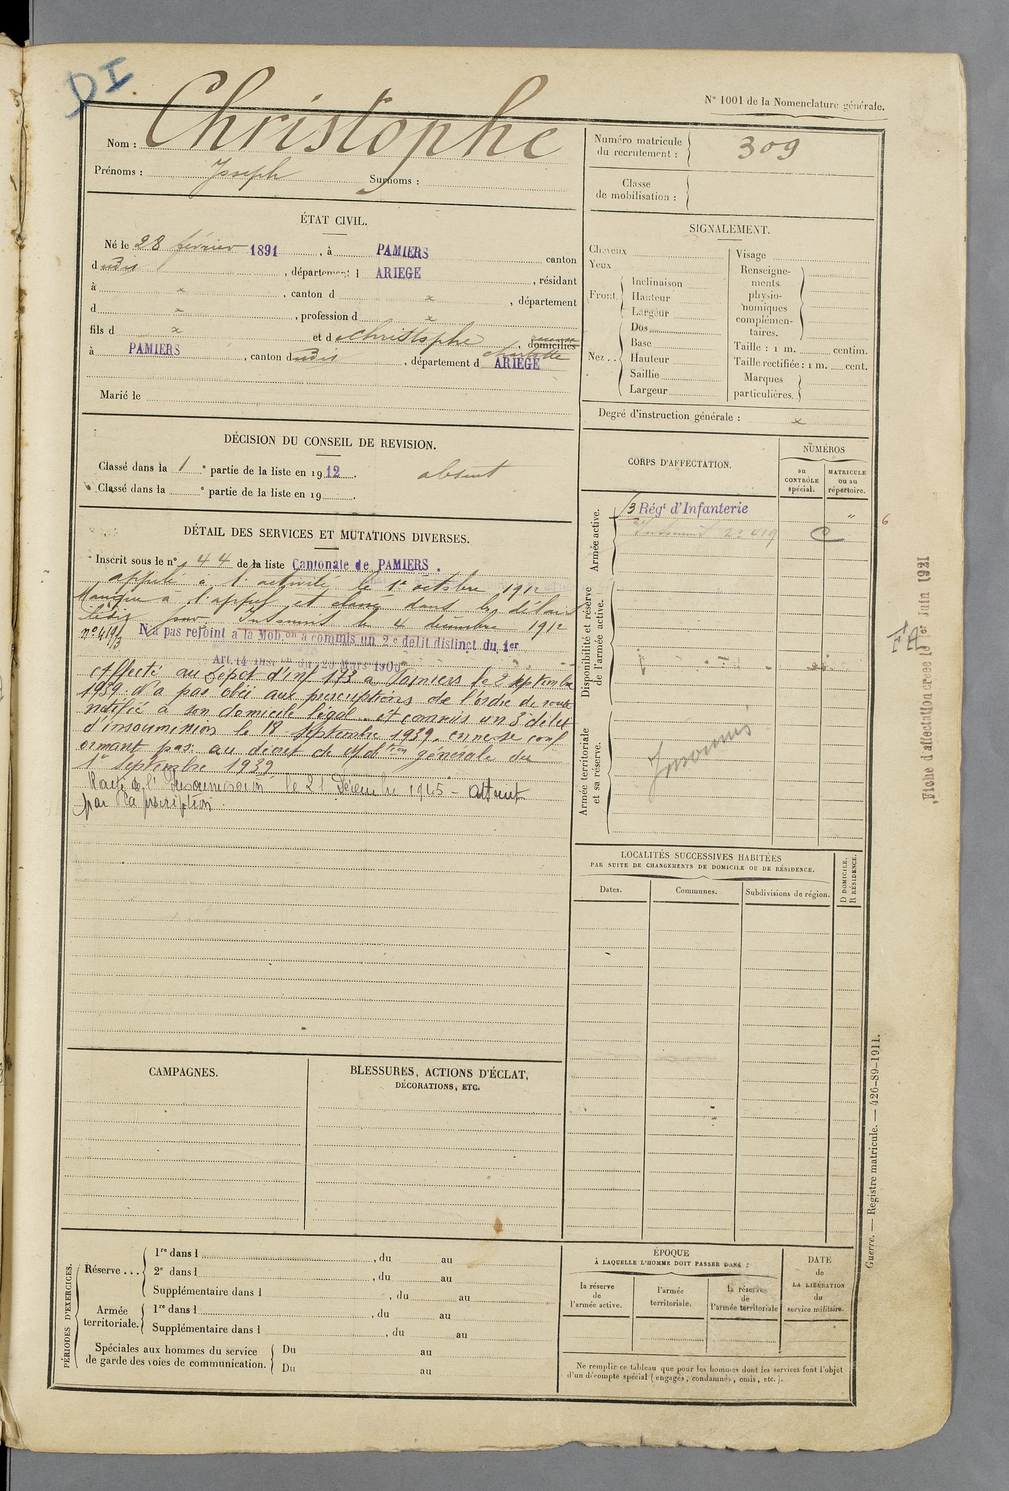 DI
N° 1001 de la Nomenclature générale.
Nom : Christophe
Prénoms : Joseph Surnoms :
Numéro matricule du recrutement : 309
Classe de mobilisation :
ÉTAT CIVIL.
Né le 28 février 1891, à PAMIERS canton
d udit, département d ARIEGE, résidant
à x, canton d x, département
d x, profession d x
fils d x et d Christophe Charlotte, domiciliés
à PAMIERS, canton dudit, département d ARIEGE
Marié le
SIGNALEMENT.
Cheveux
Yeux
Front.
Inclinaison
Hauteur
Largeur
Nez..
Dos
Base
Hauteur
Saillie
Largeur
Visage
Renseigne-
ments
physio-
nomiques
complémen-
taires.
Taille : 1 m. centim.
Taille rectifiée : 1 m. cent.
Marques
particulières.
Degré d'instruction générale : x
DÉCISION DU CONSEIL DE REVISION.
Classé dans la 1 e partie de la liste en 1912. absent
Classé dans la e partie de la liste en 19
DÉTAIL DES SERVICES ET MUTATIONS DIVERSES.
Inscrit sous le n° 44 de la liste Cantonale de PAMIERS.
appelé à l'activité le 1er octobre 1912
Manque à l'appel et classé dans les délais
pour insoumis le 4 décembre 1912
n° 419/3 N'a pas rejoint à la Mob.on a commis un 2e délit distinct du 1er
Art. 14 Inst. on du 20 Mars 1906
Affecté au Dépôt d'inf 173 à Pamiers le 2 septembre
1939. N'a pas obéi aux prescriptions de l'ordre de route
notifié à son domicile légal et commis un 3e délit
d'insoumission le 18 septembre 1939, en ne se conf
ormant pas au décret de Mobon générale du
1er septembre 1939
Rayé de l'Insoumission le 21 Décembre 1945 - atteint
par la prescription
CORPS D'AFFECTATION.
NUMÉROS
au CONTRÔLE spécial.
MATRICULE ou au répertoire.
Armée active.
Rég.t d'Infanterie
Insoumis 419
6
Disponibilité et réserve de l'armée active.
Armée territoriale et sa réserve.
Insoumis
FA
Fiche d'affectation créée le 1er Juin 1921
LOCALITÉS SUCCESSIVES HABITÉES
PAR SUITE DE CHANGEMENTS DE DOMICILE OU DE RÉSIDENCE.
Dates.
Communes.
Subdivisions de région.
D DOMICILE.
R RÉSIDENCE.
CAMPAGNES.
BLESSURES, ACTIONS D'ÉCLAT,
DÉCORATIONS, ETC.
PÉRIODES D'EXERCICES.
Réserve...
1re dans l , du au
2e dans l , du au
Supplémentaire dans l , du au
Armée territoriale.
1re dans l , du au
Supplémentaire dans l , du au
Spéciales aux hommes du service
de garde des voies de communication.
Du au
Du au
ÉPOQUE
À LAQUELLE L'HOMME DOIT PASSER DANS :
la réserve de l'armée active.
l'armée territoriale.
la réserve de l'armée territoriale
DATE
de
LA LIBÉRATION
du
service militaire.
Ne remplir ce tableau que pour les hommes dont les services font l'objet
d'un décompte spécial (engagés, condamnés, omis, etc.).
Guerre. — Registre matricule. — 426-89-1911.